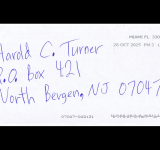 MIAMI FL 330
28 OCT 2005 PM
Harold C. Turner
P.O. Box 421
North Bergen, NJ 07047
07047-0421